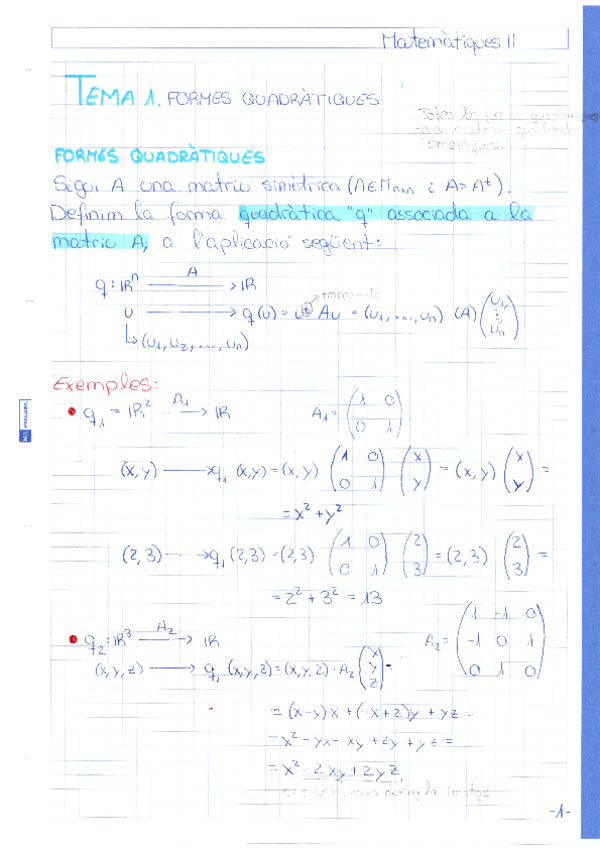 Matemàtiques II
TEMA 1. FORMES QUADRÀTIQUES
Totes les
tenen matrius quadrades
simètriques.
FORMES QUADRÀTIQUES
Sigui A una matriu simètrica (A∈Mnxn i A=Aᵗ).
Definim la forma quadràtica "q" associada a la
matriu A, a l'aplicació següent:
q: ℝⁿ —A→ ℝ
trasposada
u → q(u) = uᵗ Au = (u₁, ...., uₙ) (A) (u₁, ⋮, uₙ)
↳ (u₁, u₂, ...., uₙ)
Exemples:
• q₁ = ℝ² —A₁→ ℝ A₁ = (1 0 / 0 1)
(x, y) → q₁ (x,y) = (x, y) (1 0 / 0 1) (x / y) = (x, y) (x / y) =
= x² + y²
(2, 3) → q₁ (2,3) = (2,3) (1 0 / 0 1) (2 / 3) = (2, 3) (2 / 3) =
= 2² + 3² = 13
• q₂: ℝ³ —A₂→ ℝ A₂ = (1 -1 0 / -1 0 1 / 0 1 0)
(x, y, z) → q (x, y, z) = (x, y, z) · A₂ (x / y / z) =
= (x-y)x + (-x+z)y + yz =
= x² - yx - xy + zy + yz =
= x² - 2xy + 2yz,
la imatge
-1-